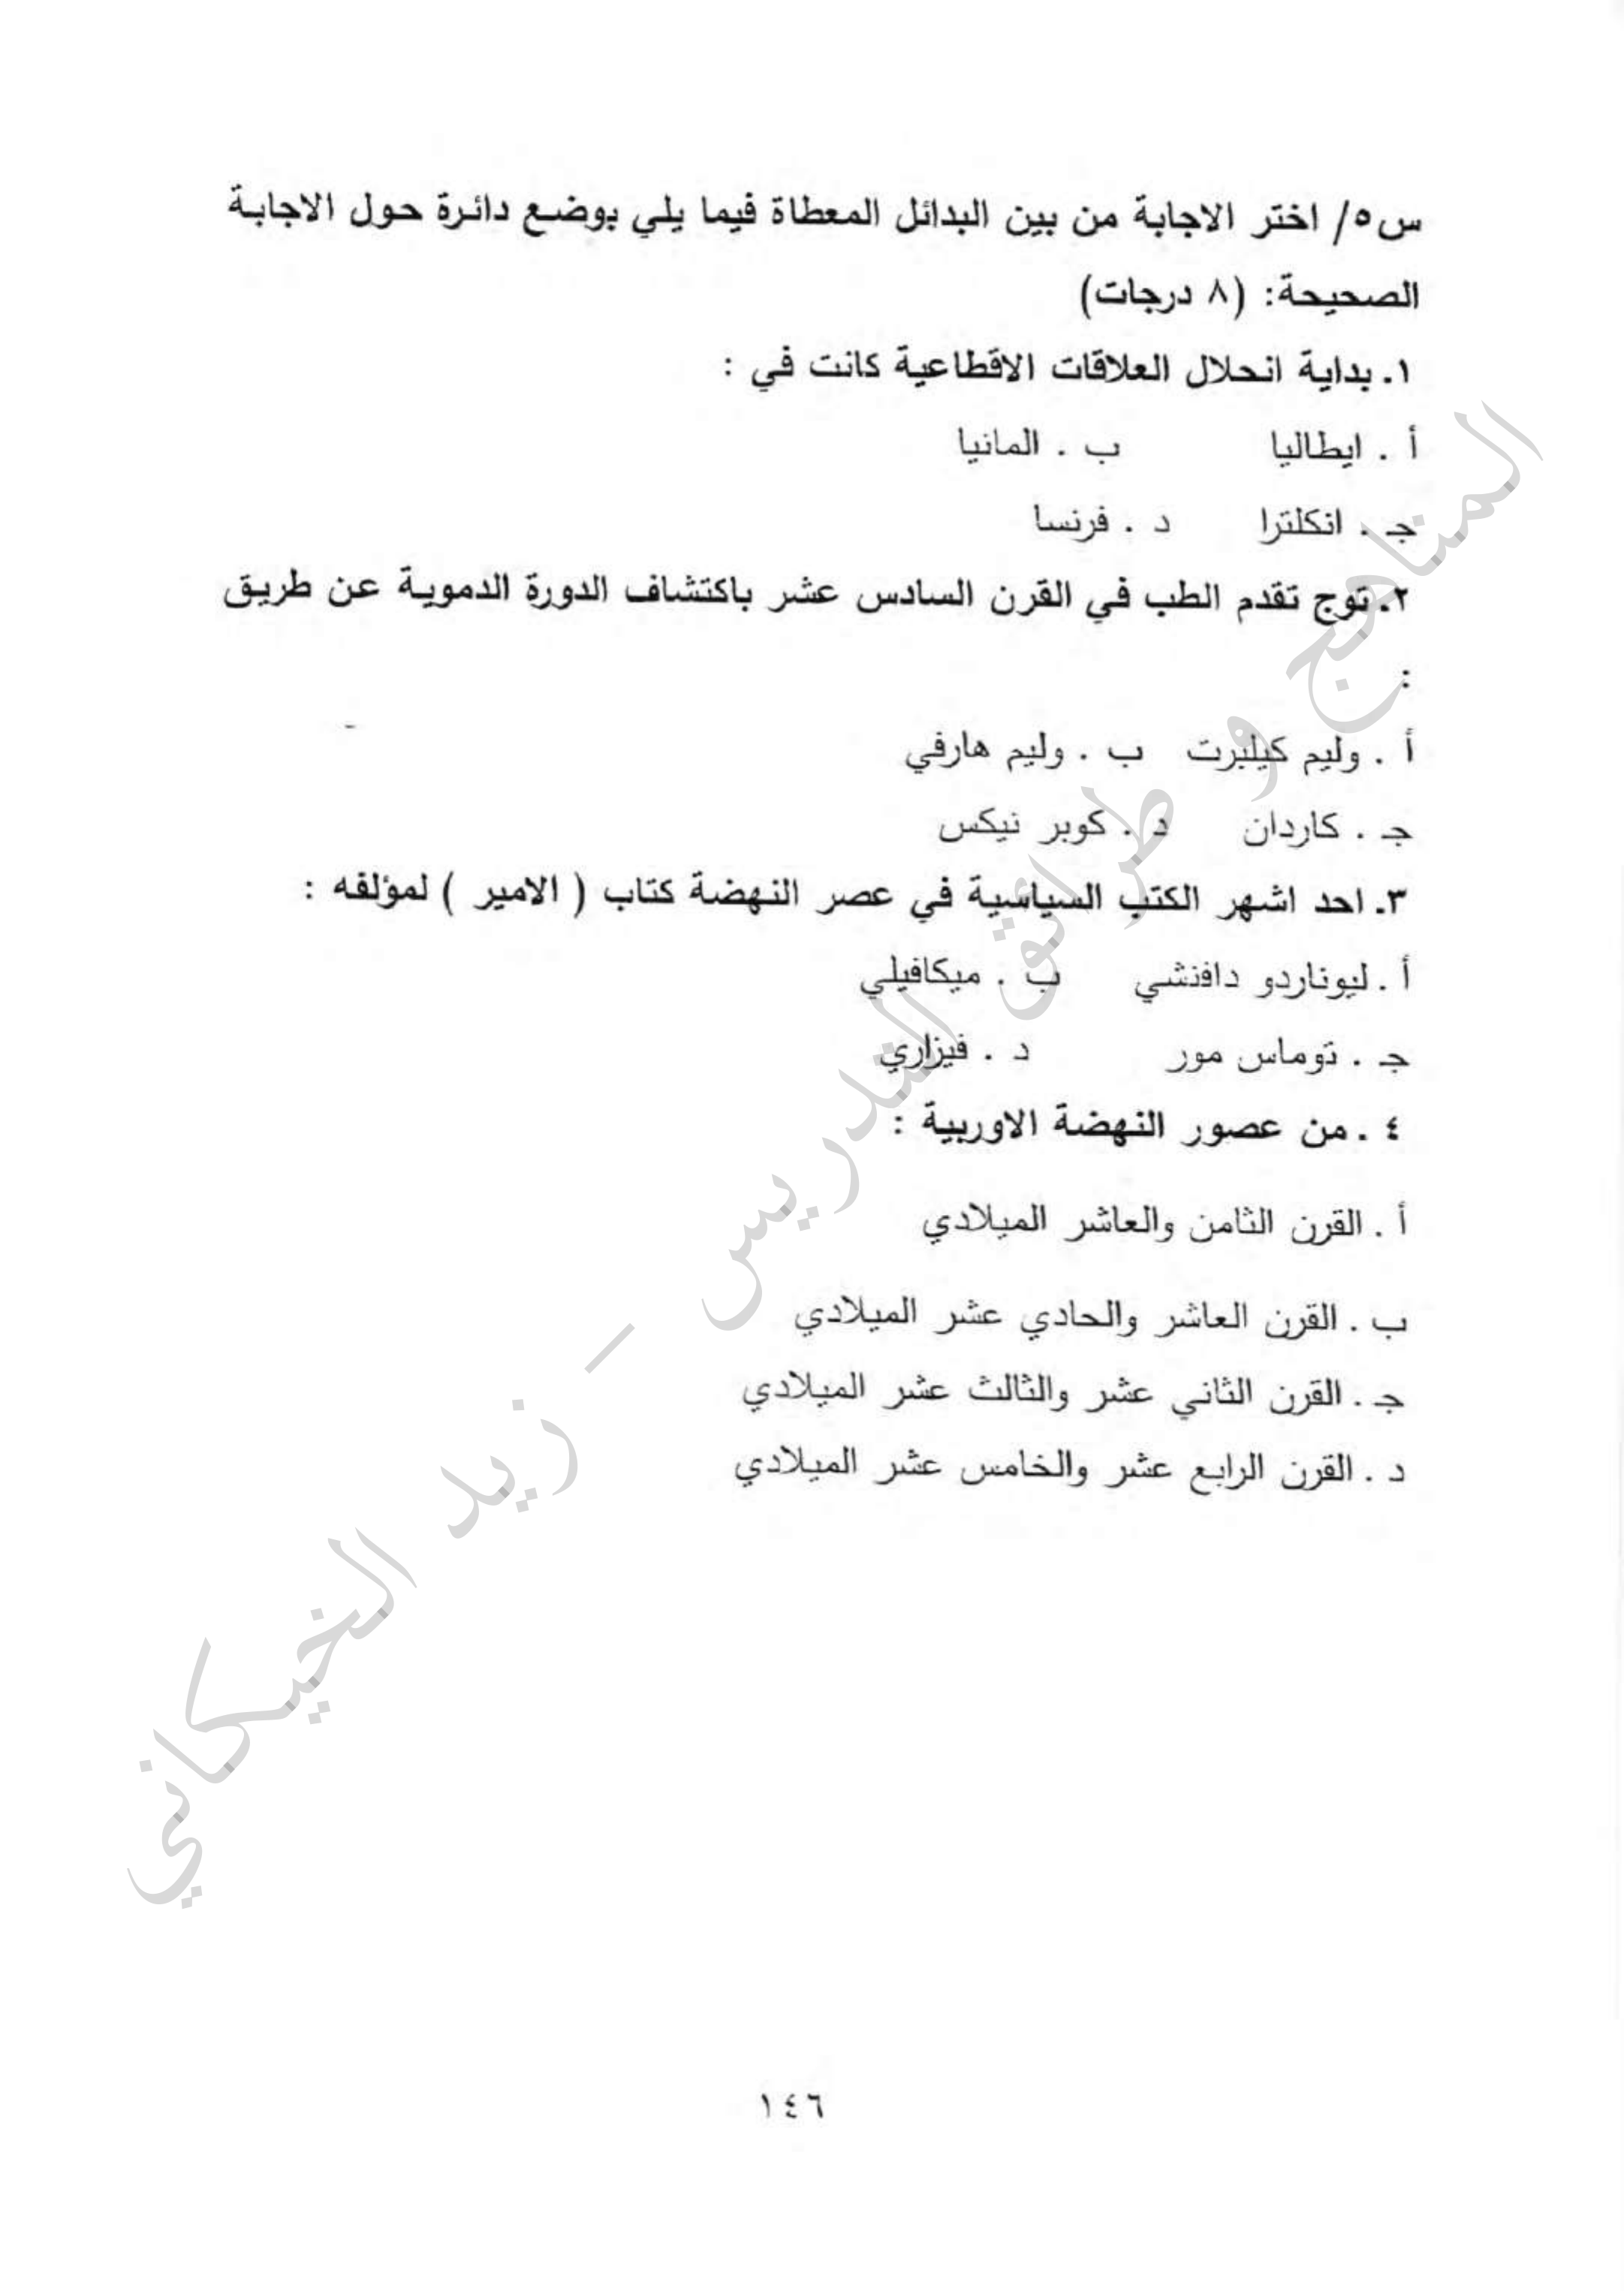 س٥/ اختر الاجابة من بين البدائل المعطاة فيما يلي بوضع دائرة حول الاجابة
الصحيحة: (٨ درجات)
١. بداية انحلال العلاقات الاقطاعية كانت في :
أ . ايطاليا ب . المانيا
جـ . انكلترا د . فرنسا
٢. توج تقدم الطب في القرن السادس عشر باكتشاف الدورة الدموية عن طريق
:
أ . وليم كيلبرت ب . وليم هارفي
جـ . كاردان د . كوبر نيكس
٣. احد اشهر الكتب السياسية في عصر النهضة كتاب ( الامير ) لمؤلفه :
أ . ليوناردو دافنشي ب . ميكافيلي
جـ . توماس مور د . فيزاري
٤ . من عصور النهضة الاوربية :
أ . القرن الثامن والعاشر الميلادي
ب . القرن العاشر والحادي عشر الميلادي
جـ . القرن الثاني عشر والثالث عشر الميلادي
د . القرن الرابع عشر والخامس عشر الميلادي
المناهج و طرائق التدريس – زيد الخيكاني
١٤٦